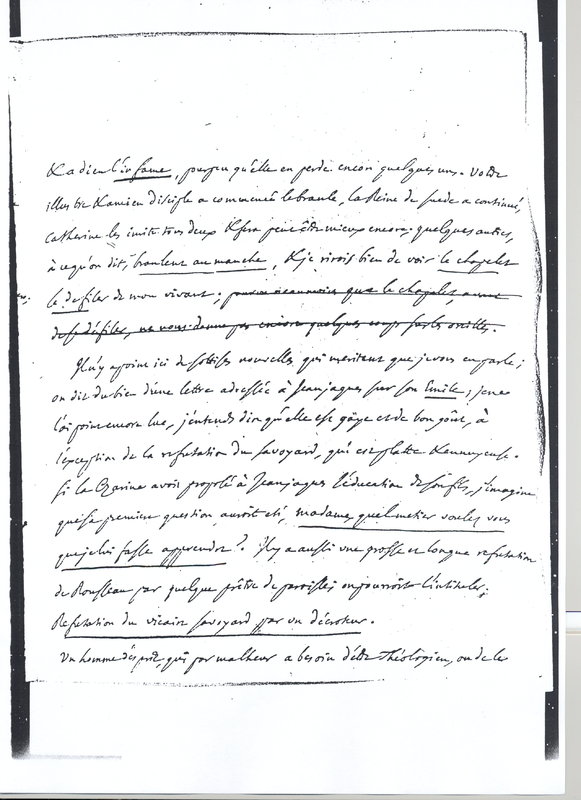 & a dieu l'infame, pour peu qu'elle en perde encor quelques uns. Votre
illustre & ancien disciple a commencé le branle, la Reine de Suede a continué,
Catherine les imite tous deux & fera peut être mieux encore. quelques autres,
à ce qu'on dit, branlent au manche, & je rirois bien de voir le chapelet
se defiler de mon vivant; pourvu néanmoins que le chapelet, avant
de se défiler, ne nous donne pas encore quelques coups sur les oreilles.
Il n'y a point ici de sottises nouvelles qui meritent que je vous en parle;
on dit du bien d'une lettre adressée à Jeanjaques sur son Emile; je ne
l'ai point encore lue, j'entends dire qu'elle est gaye et de bon goût, à
l'exception de la refutation du Savoyard, qui est platte & ennuyeuse.
Si la Czarine avoit proposé à Jeanjaques l'éducation de son fils, j'imagine
que sa premiere question auroit eté, madame, quel métier voulez vous
que je lui fasse apprendre? Il y a aussi une grosse et longue refutation
de Rousseau par quelque prêtre de paroisse; on pourroit l'intituler;
Refutation du vicaire Savoyard par un décroteur.
Un homme d'esprit, qui par malheur a besoin d'être Théologien, ou de le